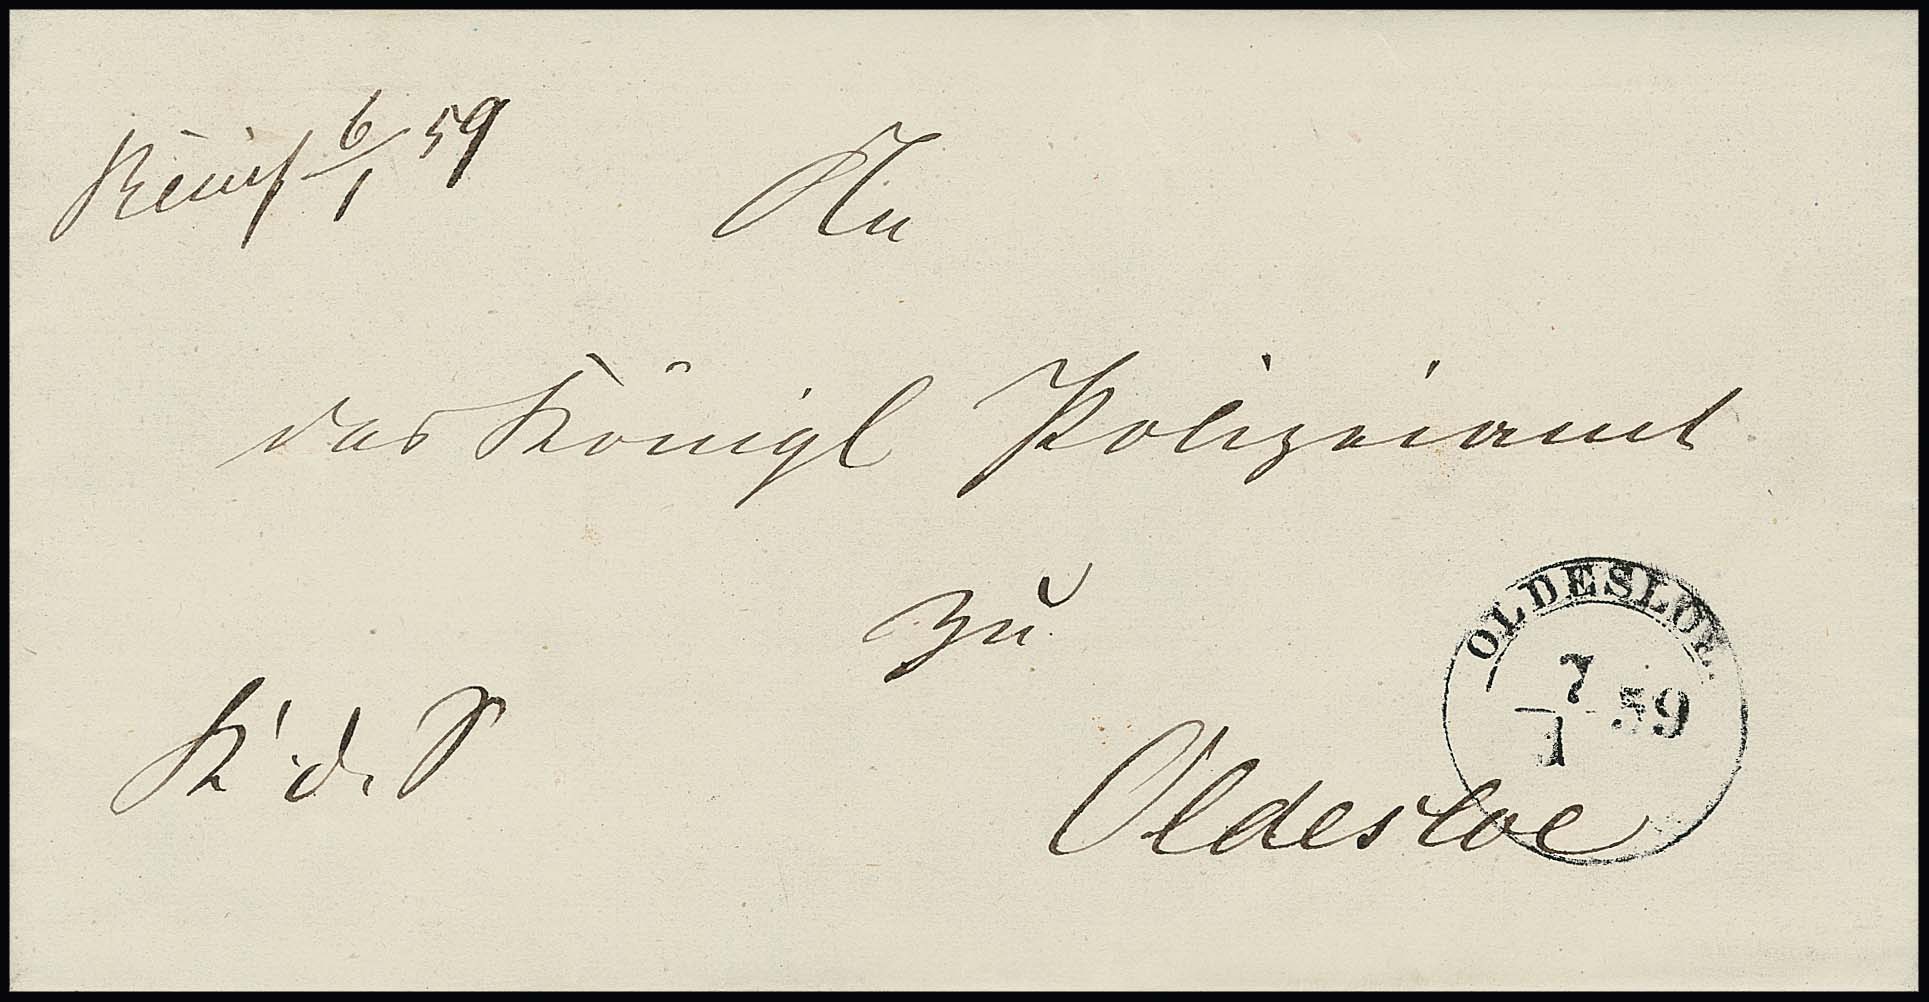 6/1 59
An
das Königl Polizeiamt
zu
Oldesloe
K. d. S
OLDESLOE.
7/1 59